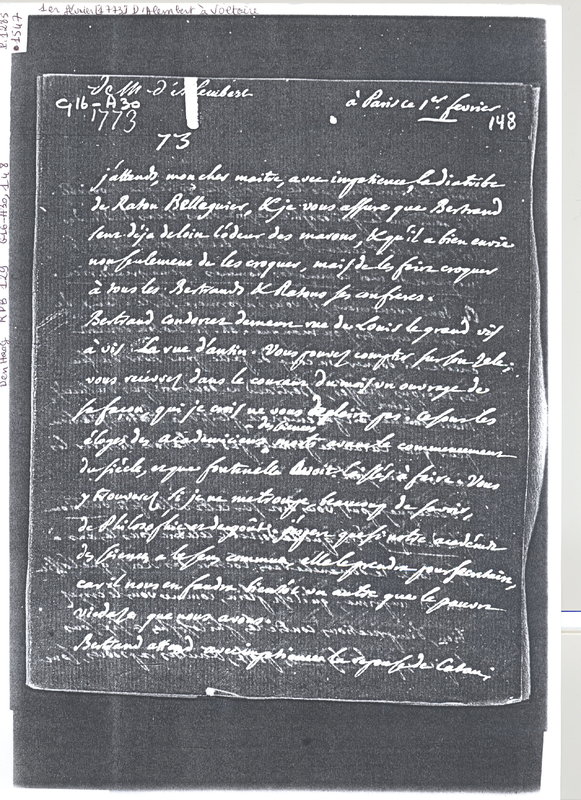 1er février [1773] D'Alembert à Voltaire
P. 1285
• 1547
Den Haag RPB 129 G16-A30, 148
De M. d'Alembert
G16-A30
à Paris ce 1er fevrier
1773
148
73
j'attends, mon cher maitre, avec impatience, la diatribe
de Raton Belleguier, & je vous assure que Bertrand
sent deja de loin l'odeur des marons, & qu'il a bien envie
non seulement de les croquer, mais de les faire croquer
à tous les Bertrands & Ratons ses confreres.
Bertrand Condorcet demeure rue de Louis le grand vis
à vis la rue d'antin. Vous pouvez compter sur son zele;
vous recevrez dans le courant du mois un ouvrage de
sa façon, qui je crois ne vous deplaira pas. ce sont les
éloges des academiciens
des sciences
morts avant le commencement
du siécle, et que fontenelle avoit laissés à faire. Vous
y trouverez, si je ne me trompe, beaucoup de savoir,
de Philosophie et de gout. j'espere que si notre académie
des sciences a le sens commun, elle le prendra pour secretaire,
car il nous en faudra bientôt un autre que le pauvre
que nous avons.
Bertrand attend avec impatience la reponse de